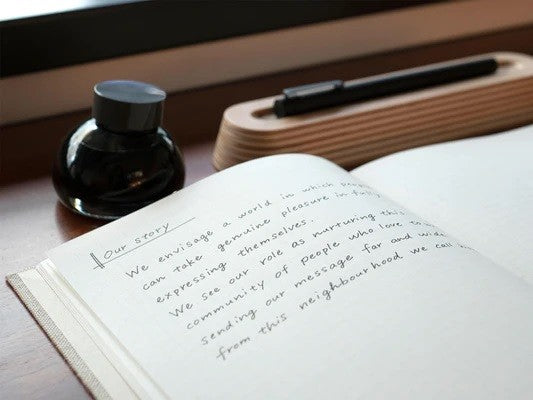 Our story
We envisage a world in which people
can take genuine pleasure in fully
expressing themselves.
We see our role as nurturing this
community of people who love to
sending our message far and wide
from this neighbourhood we call